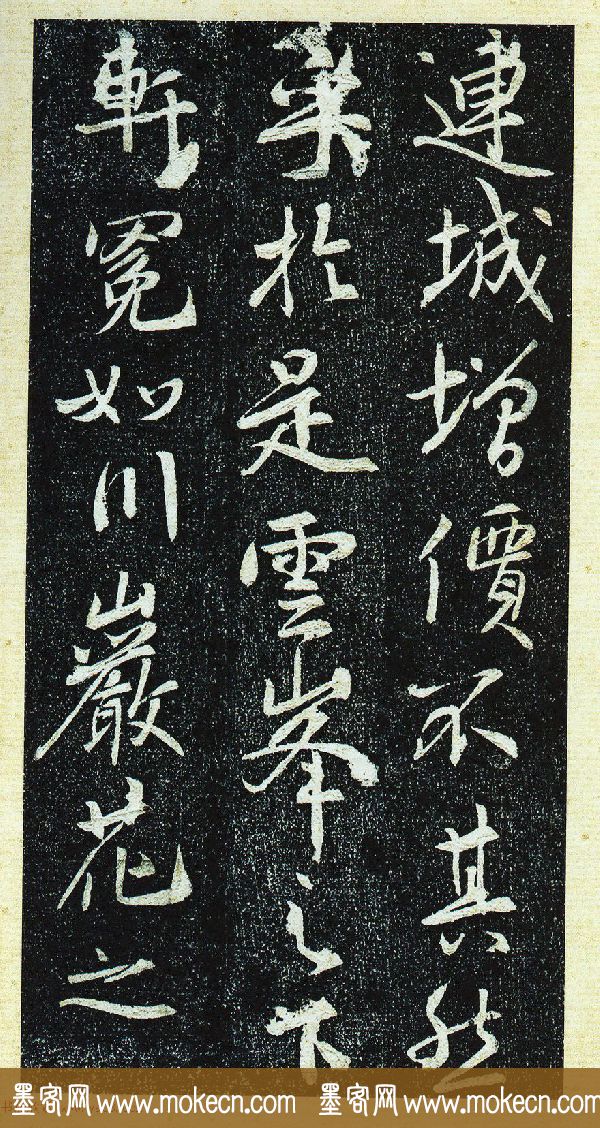 連城增價不其然
乎於是雲峯之下
軒冕如川巖花之
墨客网 www.mokecn.com 墨客网 www.mokecn.com